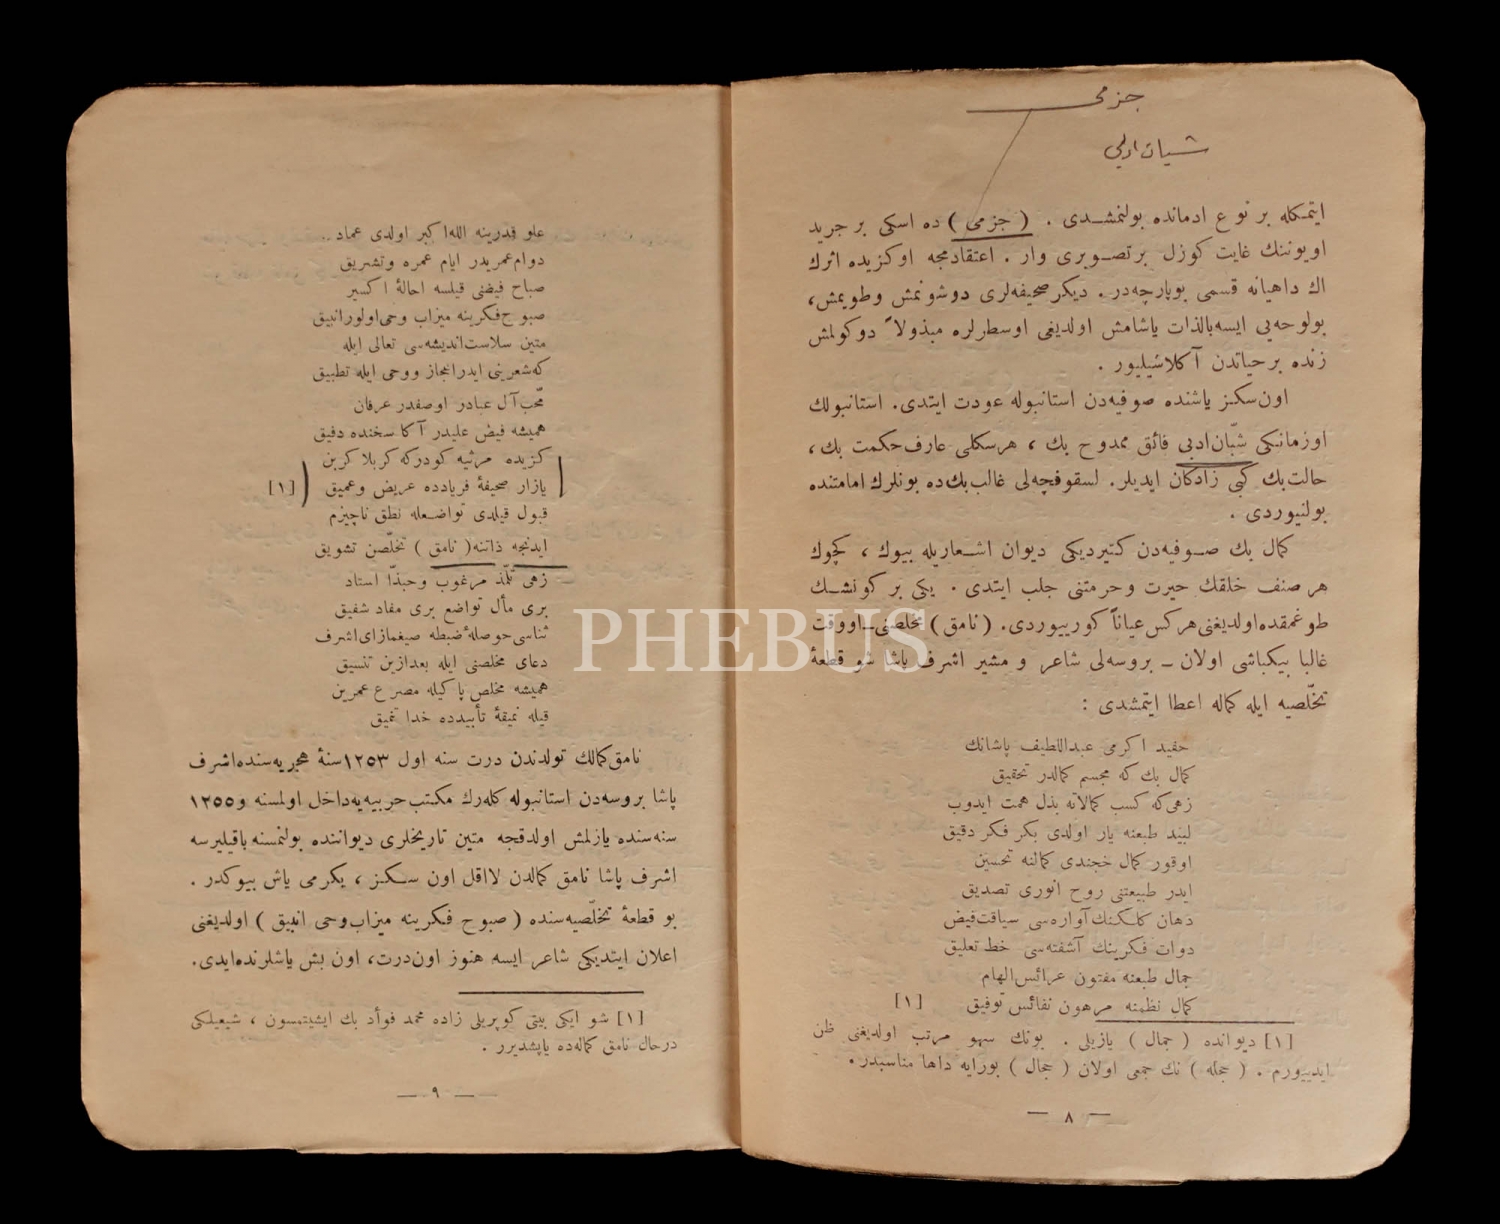 جزمی
شبان ادبی
ایتمکله بر نوع ادمانده بولنمشدی . ( جزمی ) ده اسکی بر جرید
اویوننك غایت کوزل بر تصویری وار . اعتقادمجه او کزیده اثرك
اك داهیانه قسمی بو پارچه‌در . دیکر صحیفه‌لری دوشونمش و طویمش،
بو لوحه‌یی ایسه بالذات یاشامش اولدیغی او سطرلره مبذولاً دوکولمش
زنده بر حیاتدن آکلاشیلیور .
اون سکز یاشنده صوفیه‌دن استانبوله عودت ایتدی. استانبولك
او زمانکی شبّان ادبی فائق ممدوح بك ، هرسکلی عارف حکمت بك ،
حالت بك کبی زادکان ایدیلر. لسقوفچه‌لی غالب بك ده بونلرك امامتنده
بولنیوردی .
کمال بك صوفیه‌دن کتیردیکی دیوان اشعاریله بیوك ، کچوك
هر صنف خلقك حیرت و حرمتنی جلب ایتدی . یکی بر کونشك
طوغمقده اولدیغنی هرکس عیاناً کورییوردی. ( نامق ) مخلصنی ـ او وقت
غالبا بیکباشی اولان ـ بروسه‌لی شاعر و مشیر اشرف پاشا شو قطعهٔ
تخلّصیه ایله کماله اعطا ایتمشدی :
حفید اکرمی عبداللطیف پاشانك
کمال بك که مجسم کمالدر تحقیق
زهی که کسب کمالاته بذل همت ایدوب
لبید طبعنه یار اولدی بکر فکر دقیق
اوقور کمال خجندی کمالنه تحسین
ایدر طبیعتنی روح انوری تصدیق
دهان کلکنك آواره‌سی سیاقت فیض
دوات فکرینك آشفته‌سی خط تعلیق
جمال طبعنه مفتون عرائس الهام
کمال نظمنه مرهون نفائس توفیق [١]
[١] دیوانده ( جمال ) یازیلی . بونك سهو مرتب اولدیغنی ظن
ایدییورم . ( حجله ) نك جمعی اولان ( حجال ) بورایه داها مناسبدر .
— ٨ —
علو قدرینه الله اکبر اولدی عماد
دوام عمریدر ایام عمره و تشریق
صباح فیضنی قیلسه احالهٔ اکسیر
صبوح فکرینه میزاب وحی اولور انبیق
متین سلاست اندیشه‌سی تعالی ایله
که شعرینی ایدر اعجاز و وحی ایله تطبیق
محّب آل عبادر او صفدر عرفان
همیشه فیض علیدر آکا سخنده دفیق
کزیده مرثیه کودرکه کربلا کربن
یازار صحیفهٔ فریادده عریض و عمیق [١]
قبول قیلدی تواضعله نطق ناچیزم
ایدنجه ذاتنه ( نامق ) تخلّصن تشویق
زهی تلمّذ مرغوب و حبذا استاد
بری مأل تواضع بری مفاد شفیق
ثناسی حوصلهٔ ضبطه صیغمازای اشرف
دعای مخلصنی ایله بعد ازین تنسیق
همیشه مخلص پاکیله مصرع عمرین
قیله نمیقهٔ تأبیدده خدا تنمیق
نامق کمالك تولدندن درت سنه اول ١٢٥٣ سنهٔ هجریه‌سنده اشرف
پاشا بروسه‌دن استانبوله کله‌رك مکتب حربیه‌یه داخل اولمسنه و ١٢٥٥
سنه‌سنده یازلمش اولدقجه متین تاریخلری دیواننده بولنمسنه باقیلیرسه
اشرف پاشا نامق کمالدن لااقل اون سکز ، یکرمی یاش بیوکدر .
بو قطعهٔ تخلّصیه‌سنده ( صبوح فکرینه میزاب وحی انبیق ) اولدیغنی
اعلان ایتدیکی شاعر ایسه هنوز اون درت، اون بش یاشلرنده ایدی.
[١] شو ایکی بیتی کوپریلی زاده محمد فوأد بك ایشیتمسون ، شیعیلکی
درحال نامق کماله ده یاپشدیرر .
— ٩ —
PHEBUS